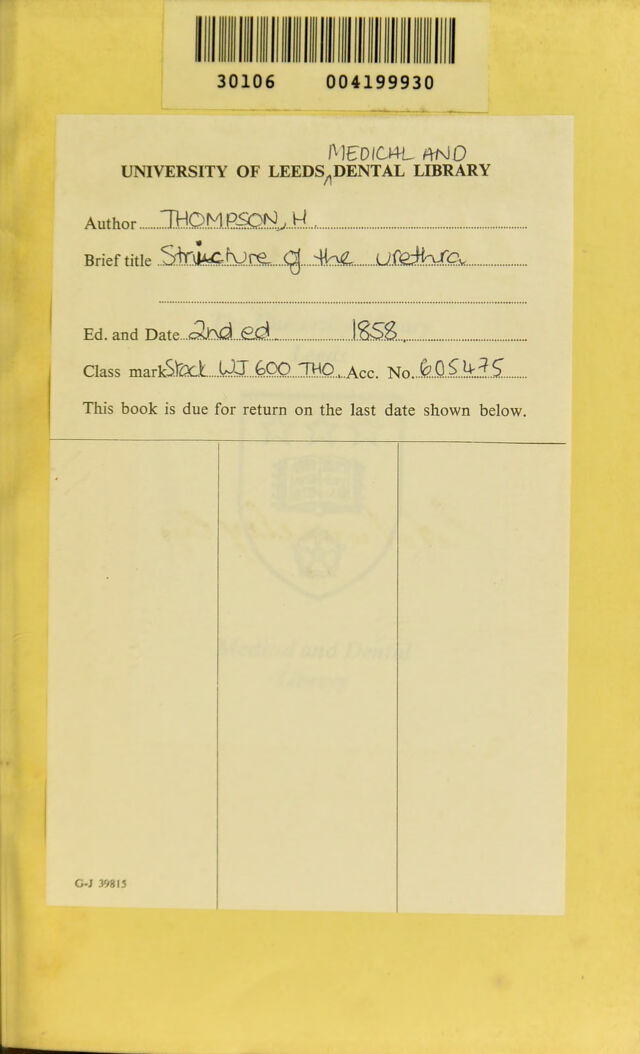 30106 004199930
MEDICAL AND
UNIVERSITY OF LEEDS DENTAL LIBRARY
Author THOMPSON, H.
Brief title Stricture of the urethra
Ed. and Date 2nd ed. 1858.
Class mark Stack WJ 600 THO. Acc. No. 605475
This book is due for return on the last date shown below.
Medical and Dental
Library
G-J 39815